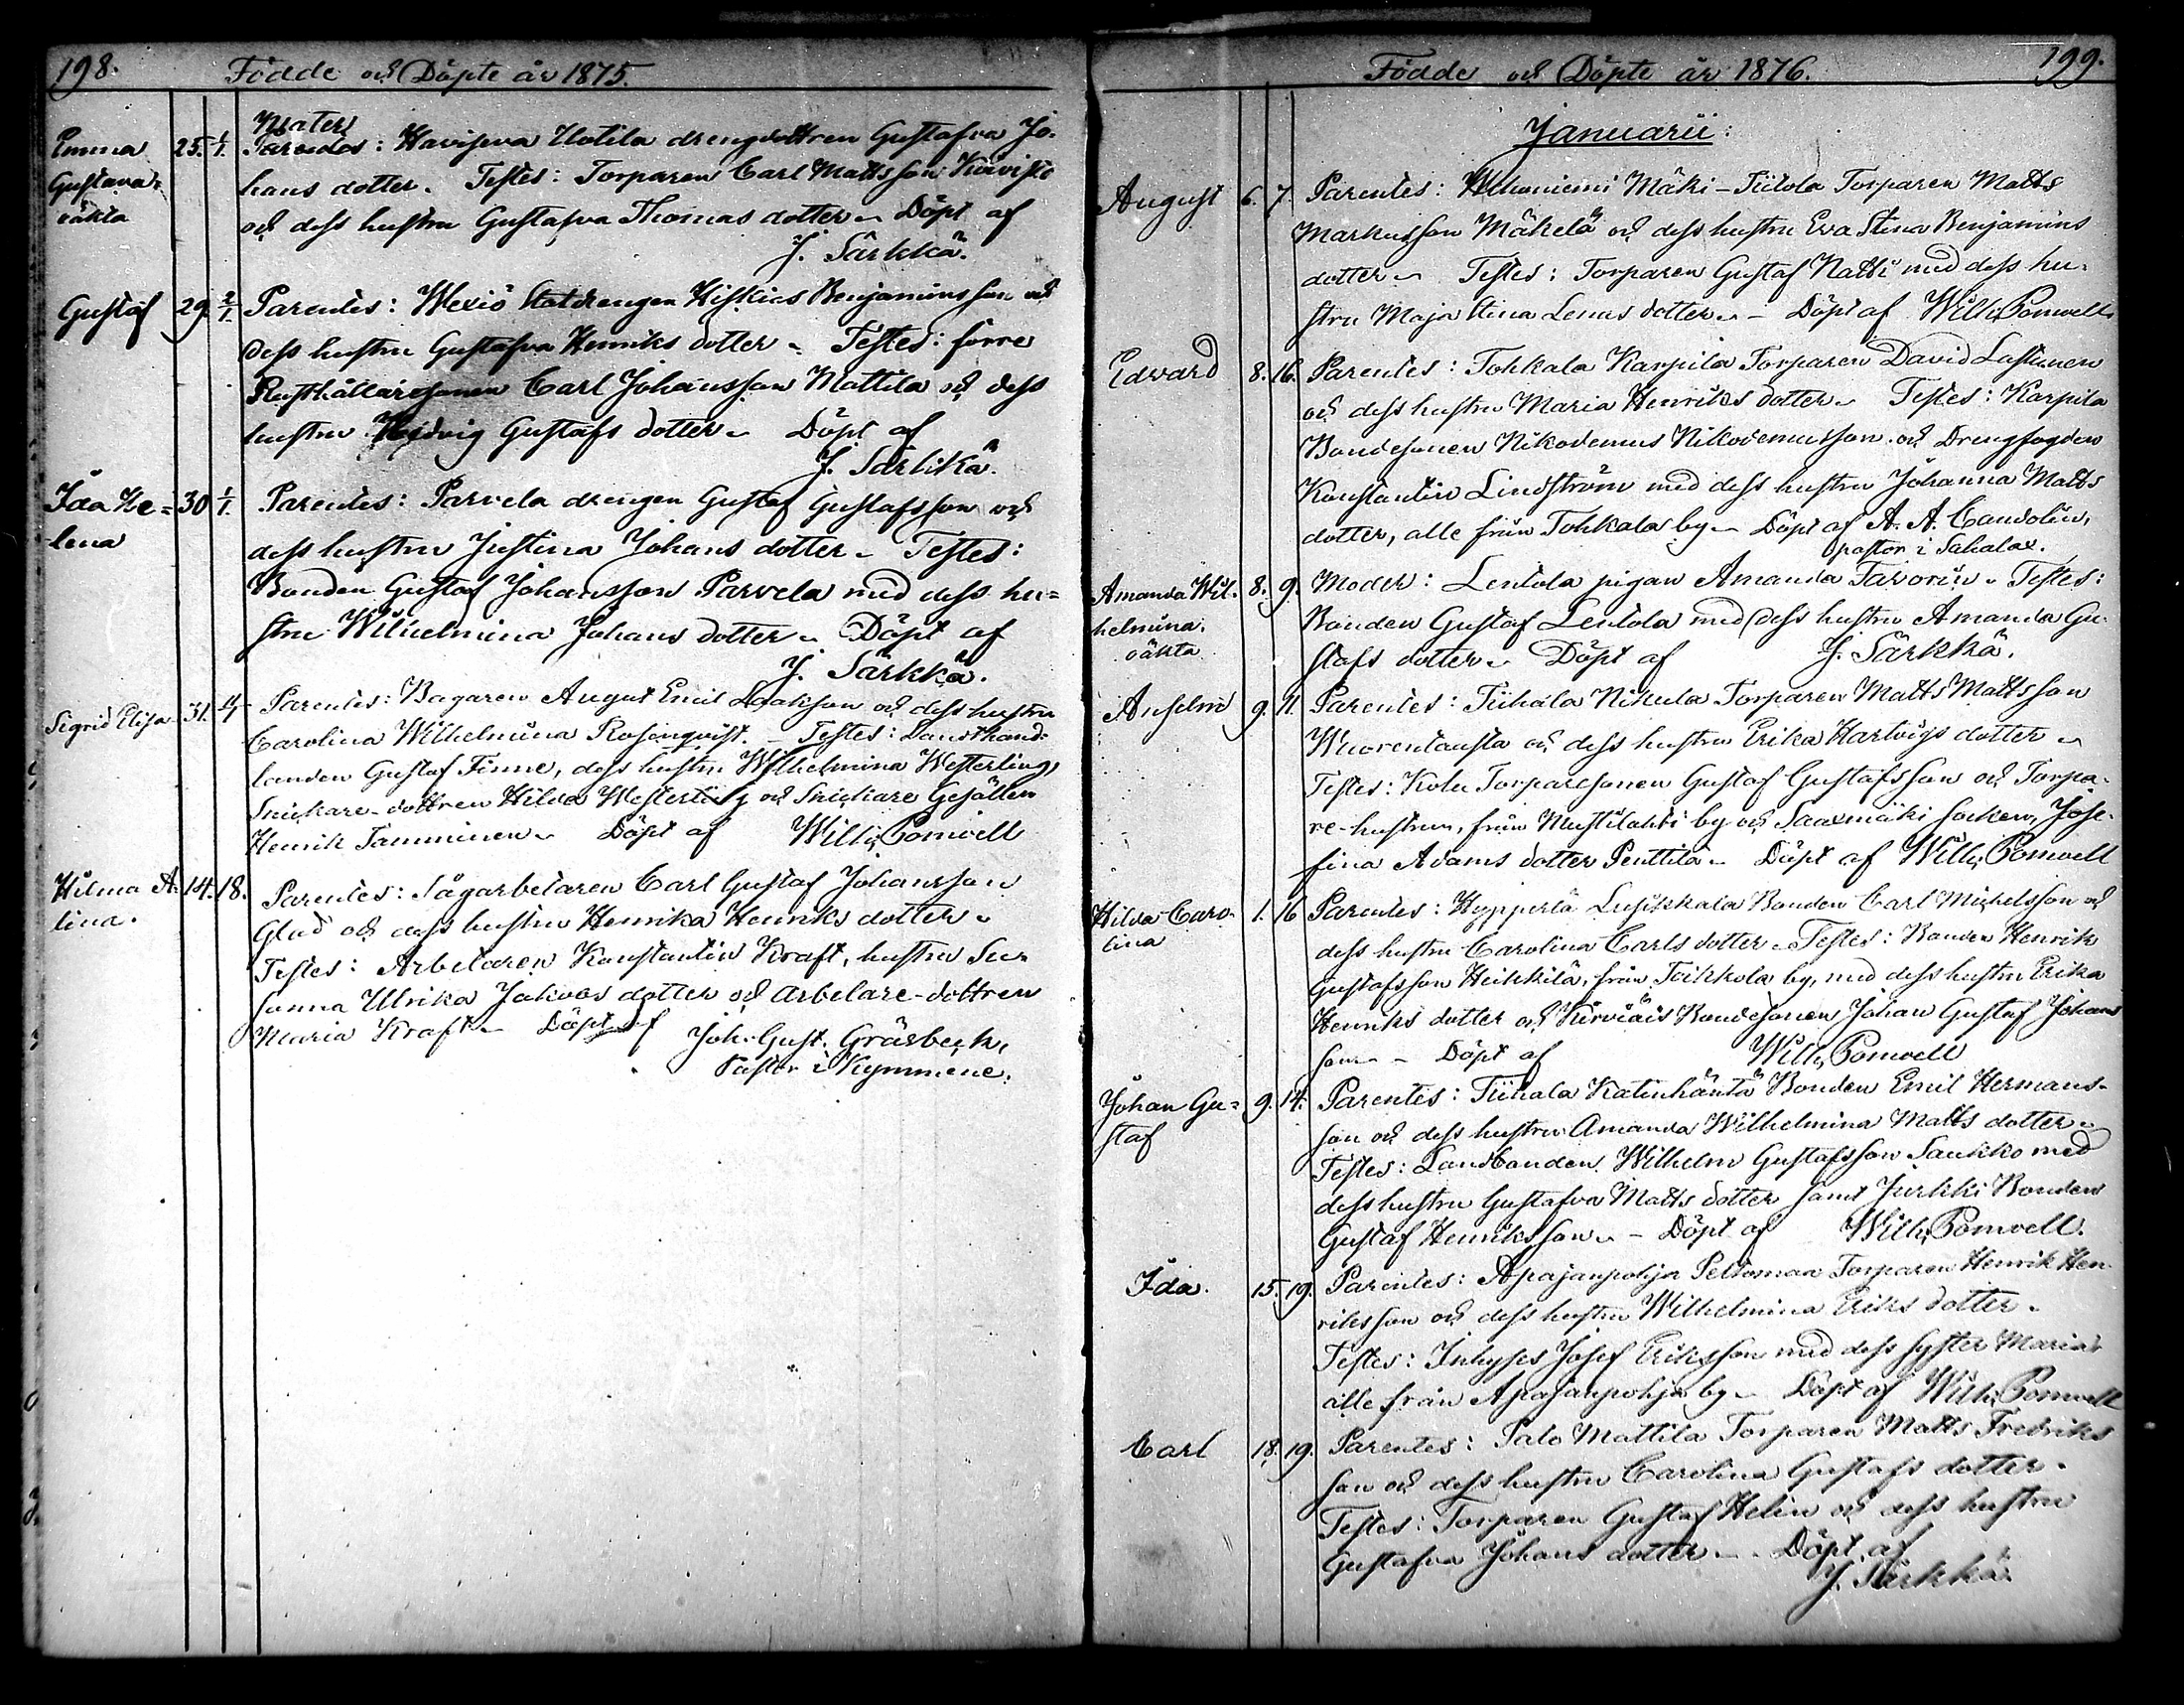 198.
Födde och Döpte år 1875.
Emma Gustava, oäkta
25. 1/1.
Mater
Parentes: Haviseva Uotila drengdottren Gustafva Jo-
hans dotter. Testes: Torparen Carl Mattsson Koivisto
och dess hustru Gustafva Thomas dotter. Döpt af
J. Särkkä.
Gustaf
29. 2/1.
Parentes: Wexiö Statdrengen Hiskias Benjaminsson och
dess hustru Gustafva Henriks dotter. Testes: förre
Rusthållaresonen Carl Johansson Mattila och dess
hustru Hedvig Gustafs dotter. Döpt af
J. Särkkä.
Ida He=
lena
30 1/1.
Parentes: Parvela drengen Gustaf Gustafsson och
dess hustru Justina Johans dotter. Testes:
Bonden Gustaf Johansson Parvela med dess hu=
stru Wilhelmina Johans dotter. Döpt af
J. Särkkä.
Sigrid Elisa
31.
Parentes: Bagaren August Emil Laakson och dess hustru
Carolina Wilhelmina Rosenqvist. Testes: Landthand-
landen Gustaf Finne, dess hustru Wilhelmina Westerling,
Snickare-dottren Hilda Westerling och Snickare Gesällen
Henrik Tamminen. Döpt af Wilh. Pomoell
Hilma A-
lina.
14. 18.
Parentes: Sågarbetaren Carl Gustaf Johansson
Glad och dess hustru Henrika Henriks dotter.
Testes: Arbetaren Konstantin Kraft, hustru Su-
sanna Ulrika Jakobs dotter och Arbetare-dottren
Maria Kraft. Döpt af Joh. Gust. Gräsbeck,
Pastor i Kymmene.
Födde och Döpte år 1876.
199.
Januarii:
August
6. 7.
Parentes: Uhaniemi Mäki-Tiitola Torparen Matts
Markusson Mäkelä och dess hustru Eva Stina Benjamins
dotter. Testes: Torparen Gustaf Natti med dess hu-
stru Maja Stina Lenas dotter. Döpt af Wilh. Pomoell
Edvard
8. 16.
Parentes: Tohkala Karpila Torparen David Lastunen
och dess hustru Maria Henriks dotter. Testes: Karpila
Bondesonen Nikodemus Nikodemusson och Drengfogden
Konstantin Lindström med dess hustru Johanna Matts
dotter, alle från Tohkala by. Döpt af A. A. Candolin,
pastor i Sahalax.
Amanda Wil-
helmina.
oäkta
8. 9.
Moder: Lentola pigan Amanda Tavorin. Testes:
Bonden Gustaf Lentola med dess hustru Amanda Gu-
stafs dotter. Döpt af J. Särkkä.
Anselm
9. 11.
Parentes: Tiihala Nikula Torparen Matts Mattsson
Wuorentausta och dess hustru Erika Hartvigs dotter.
Testes: Kolu Torparesonen Gustaf Gustafsson och Torpa-
re-hustrun, från Mustilahti by och Saaxmäki socken, Jose-
fina Adams dotter Penttilä. Döpt af Wilh. Pomoell
Hilda Caro-
lina
1. 16
Parentes: Hypperlä Lusikkala Bonden Carl Michelsson och
dess hustru Carolina Carls dotter. Testes: Bonden Henrik
Gustafsson Heikkilä, från Toikkola by, med dess hustru Erika
Henriks dotter och Bondesonen Johan Gustaf Johans
son. Döpt af Wilh. Pomoell
Johan Gu=
staf
9. 14.
Parentes: Tiihala Katinhäntä Bonden Emil Hermans-
son och dess hustru Amanda Wilhelmina Matts dotter.
Testes: Landbonden Wilhelm Gustafsson Saukko med
dess hustru Gustafva Matts dotter samt Jurkki Bonden
Gustaf Henriksson. Döpt af Wilh. Pomoell.
Ida.
15. 19.
Parentes: Apajanpohja Peltomaa Torparen Henrik Hen-
riksson och dess hustru Wilhelmina Eriks dotter.
Testes: Inhyses Josef Eriksson med dess syster Maria,
alle från Apajanpohja by. Döpt af Wilh. Pomoell
Carl
18. 19.
Parentes: Palo Mattila Torparen Matts Fredriks
son och dess hustru Carolina Gustafs dotter.
Testes: Torparen Gustaf Helin och dess hustru
Gustafva Johans dotter. Döpt af
J. Särkkä.